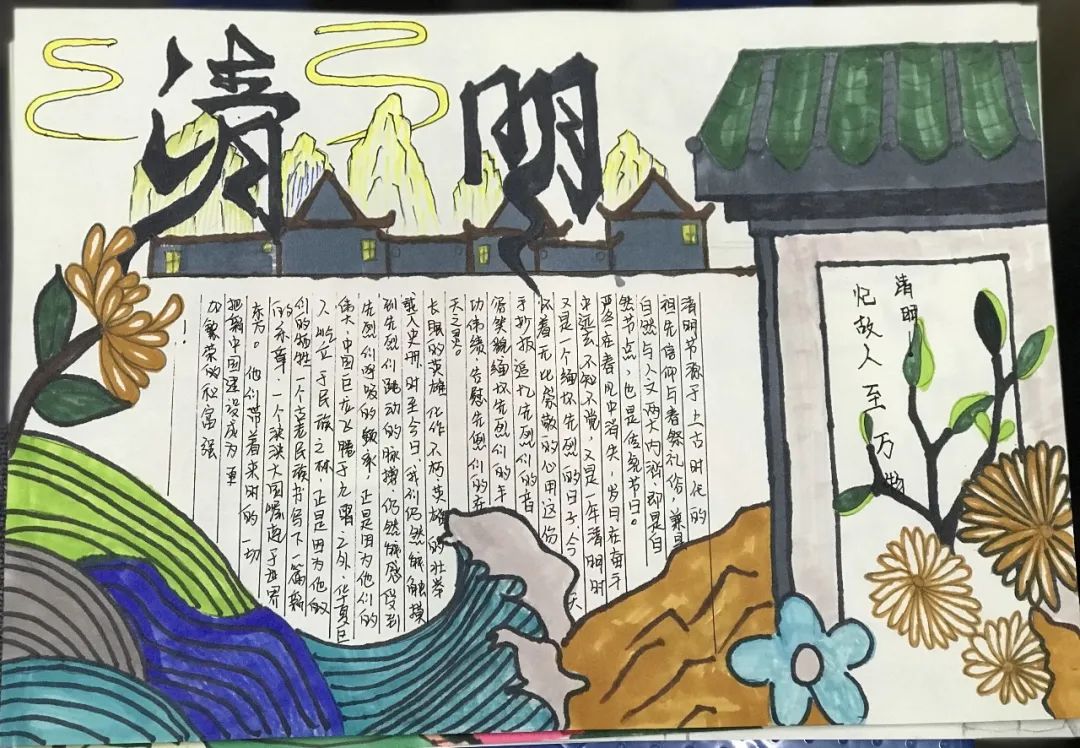 清明
清明节源于上古时代的
祖先信仰与春祭礼俗，兼具
自然与人文两大内涵，即是自
然节点，也是传统节日。
严冬在春风中消失，岁月在奋斗
中远去，不知不觉，又是一年清明时
又是一个缅怀先烈的日子，今天
怀着无比崇敬的心用这份
手抄报追忆先烈们的音
容笑貌，缅怀先烈们的丰
功伟绩，告慰先烈们的在
天之灵。
长眠的英雄化作不朽，英雄的壮举
载入史册，时至今日，我们仍然能触摸
到先烈们跳动的脉搏，仍然能感受到
先烈们呼吸的频率，正是因为他们的
伟大，中国巨龙飞腾于九霄之外，华夏巨
人屹立于民族之林，正是因为他们
们的牺牲，一个古老民族书写下一篇
的乐章，一个泱泱大国崛起于世界
东方。他们带着未来时的一切
把新中国建设成为更
加繁荣的和富强
！
清明
忆故人至万物